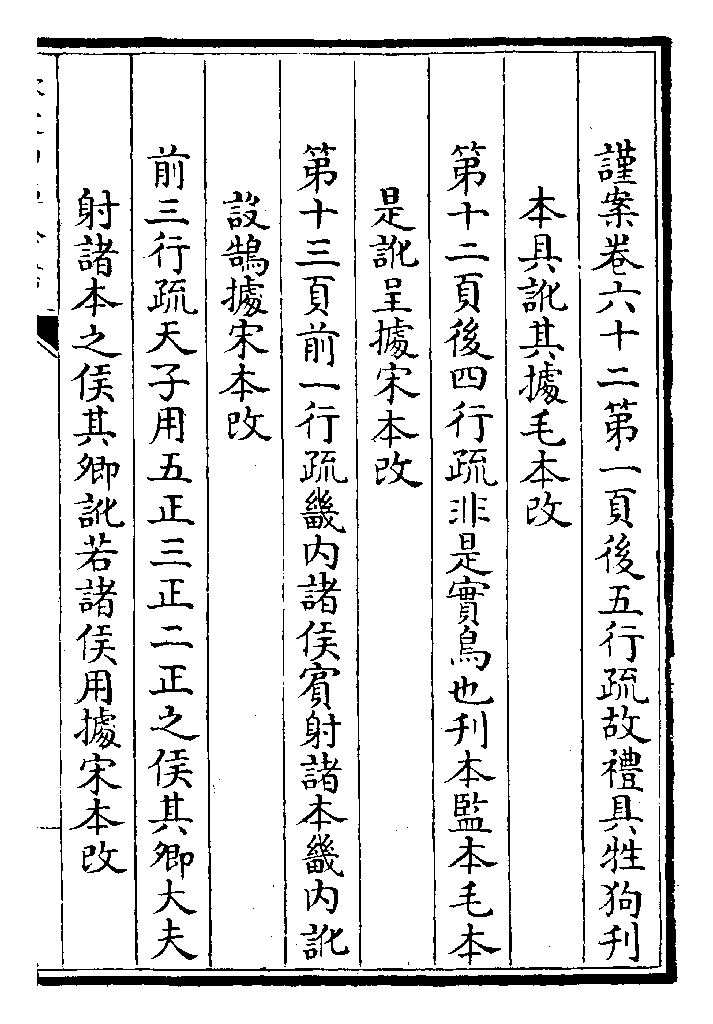 謹案卷六十二第一頁後五行疏故禮具牲狗刋
本具訛其據毛本改
第十二頁後四行疏非是實鳥也刋本監本毛本
是訛呈據宋本改
第十三頁前一行疏畿内諸侯賓射諸本畿内訛
設鵠據宋本改
前三行疏天子用五正三正二正之侯其卿大夫
射諸本之侯其卿訛若諸侯用據宋本改